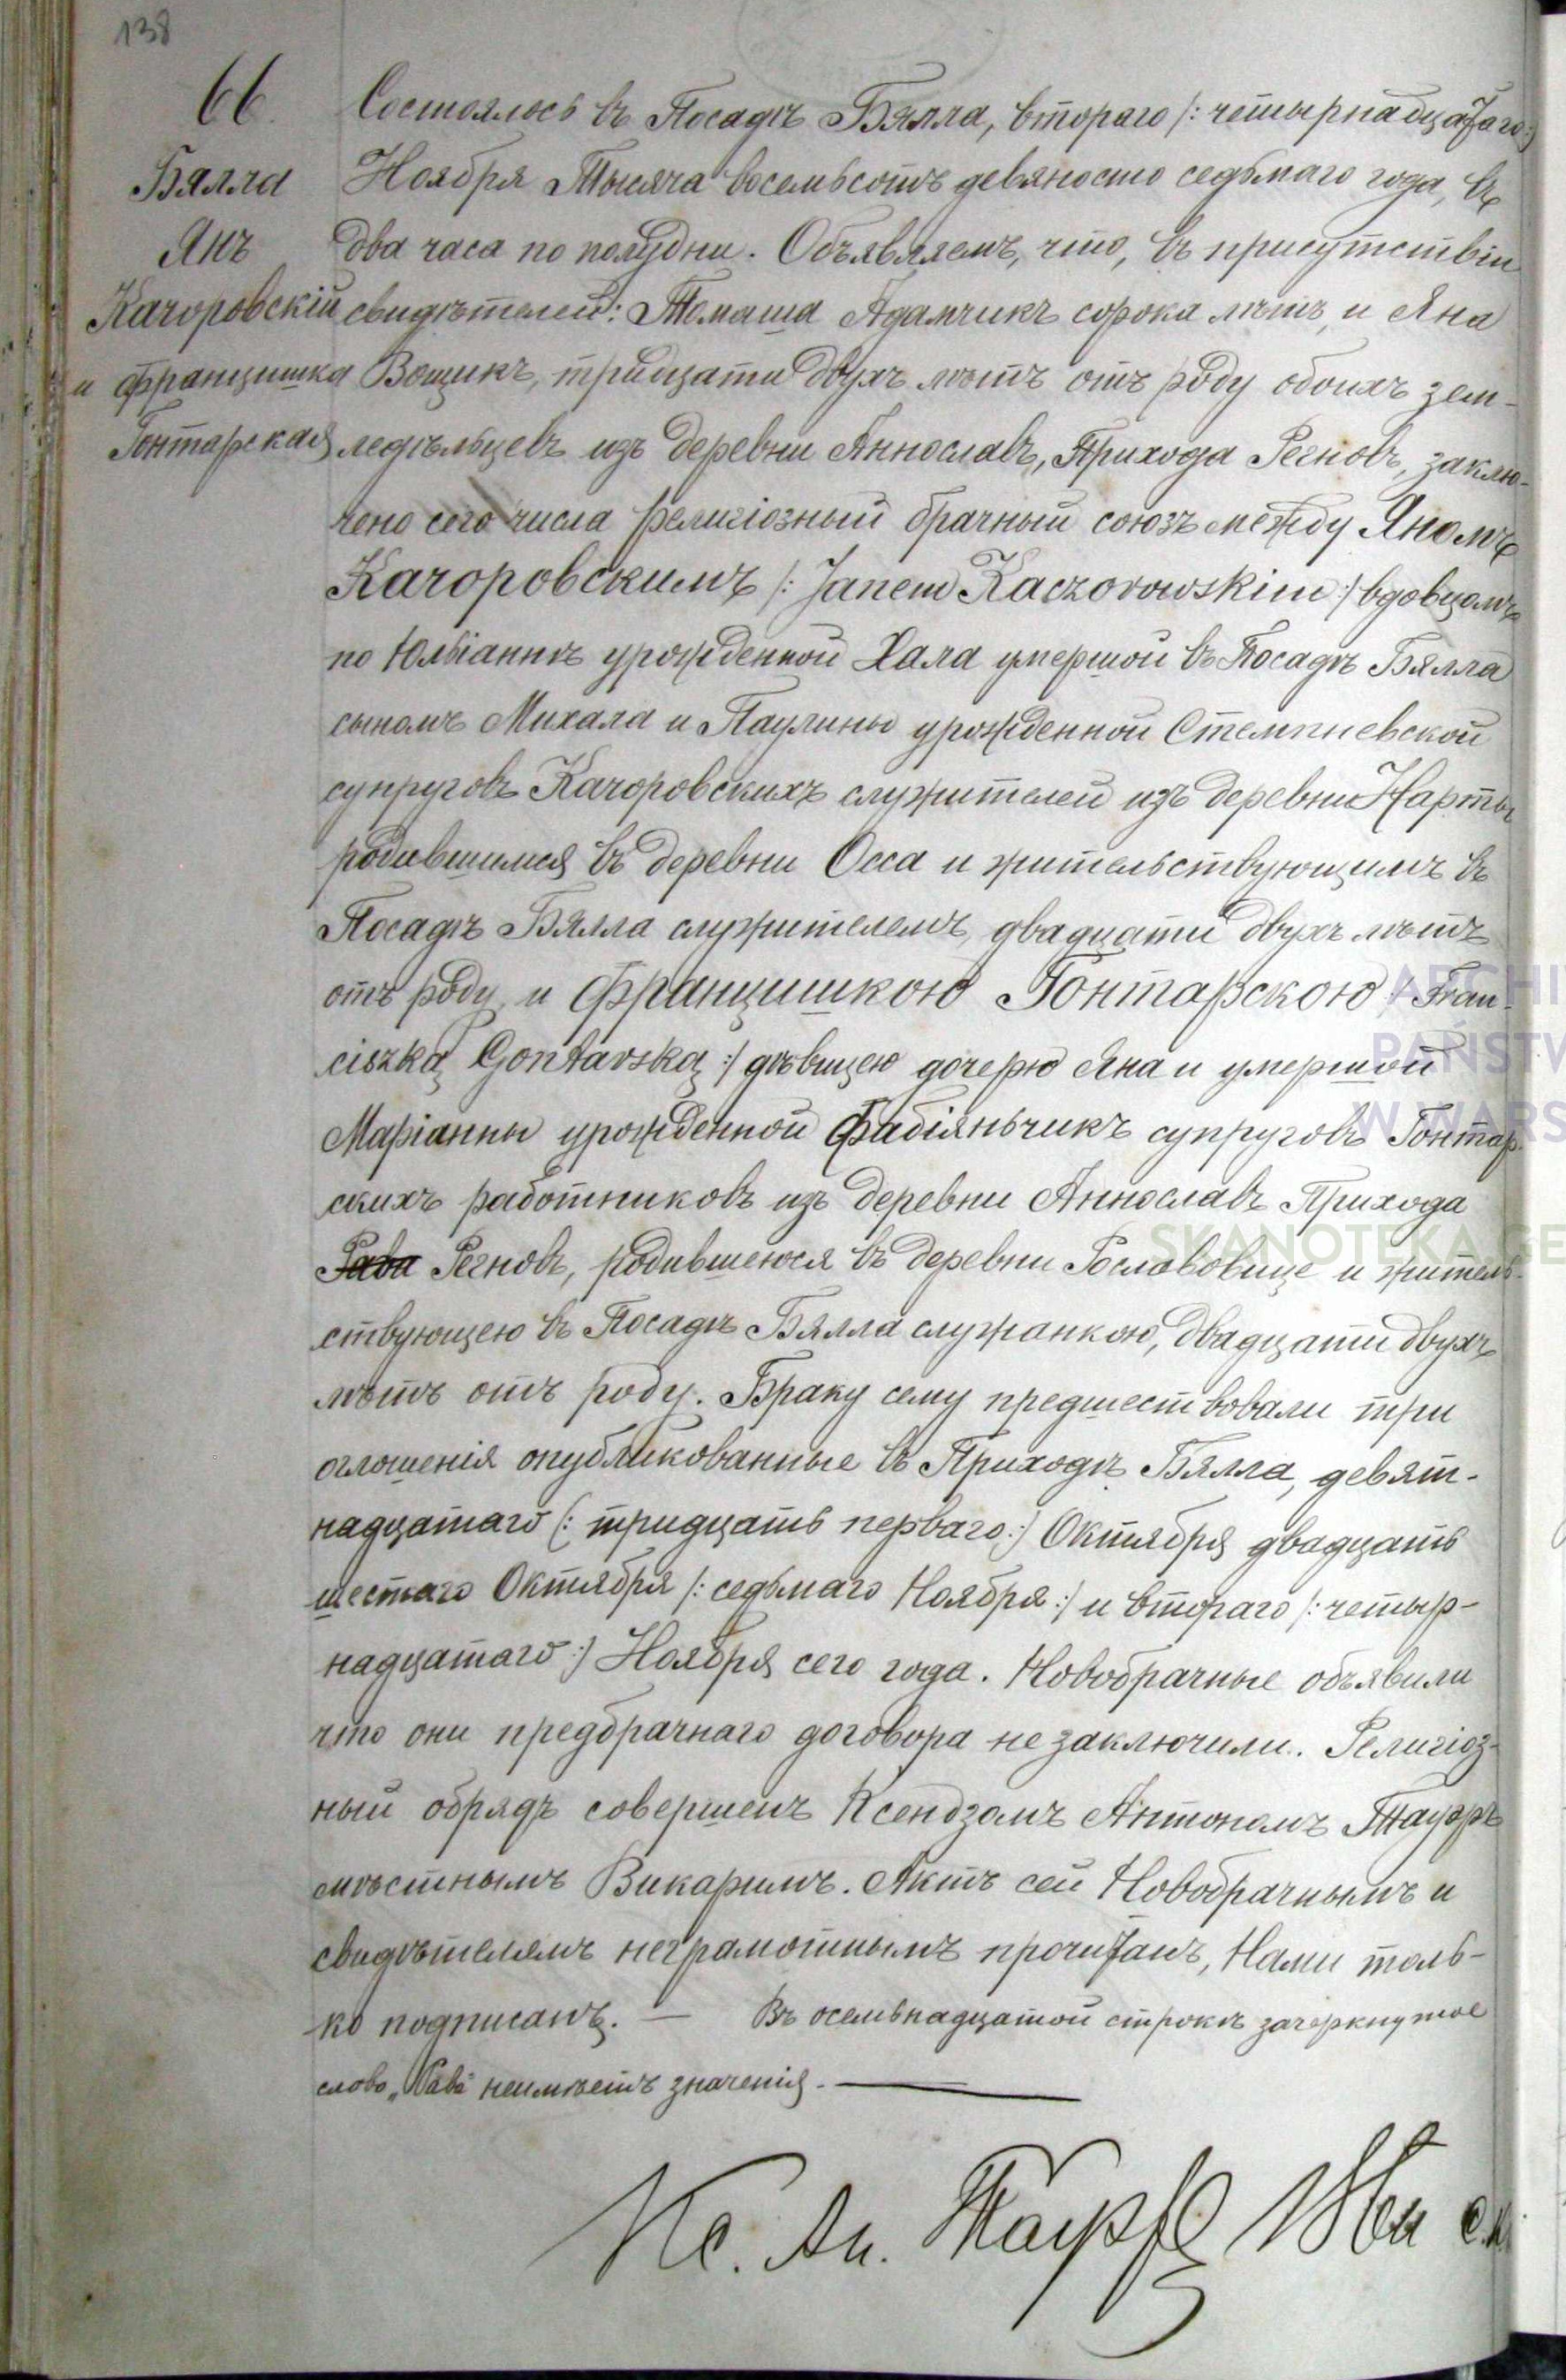 138
66.
Бялла
Янъ
Качоровскій
и Францишка
Гонтарская
Состоялось въ Посадѣ Бялла, втораго /: четырнадцатаго :/
Ноября Тысяча восемьсотъ девяносто седьмаго года, въ
два часа по полудни. Объявляемъ, что, въ присутствіи
свидѣтелей: Томаша Адамчикъ сорока лѣтъ, и Яна
Вощикъ, тридцати двухъ лѣтъ отъ роду обоихъ зем-
ледѣльцевъ изъ деревни Аннославъ, Прихода Регновъ, заклю-
чено сего числа религіозный брачный союзъ между Яномъ
Качоровскимъ /: Janem Kaczorowskim :/ вдовцомъ
по Юліаннѣ урожденной Хала умершой въ Посадѣ Бялла
сыномъ Михала и Паулины урожденной Стемпневской
супруговъ Качоровскихъ служителей изъ деревни Нарты
родившимся въ деревни Осса и жительствующимъ въ
Посадѣ Бялла служителемъ, двадцати двухъ лѣтъ
отъ роду, и Францишкою Гонтарскою /: Fran-
ciszką Gontarską :/ дѣвицею дочерю Яна и умершой
Маріанны урожденной Фабіяньчикъ супруговъ Гонтар-
скихъ работниковъ изъ деревни Аннославъ Прихода
Рава Регновъ, родившеюся въ деревни Рославовице и житель-
ствующею въ Посадѣ Бялла служанкою, двадцати двухъ
лѣтъ отъ роду. Браку сему предшествовали три
оглошенія опубликованные въ Приходѣ Бялла, девят-
надцатаго /: тридцать перваго :/ Октября двадцать
шестаго Октября /: седьмаго Ноября :/ и втораго /: четыр-
надцатаго :/ Ноября сего года. Новобрачные объявили
что они предбрачнаго договора не заключили. Религіоз-
ный обрядъ совершенъ Ксендзомъ Антономъ Тауэръ
мѣстнымъ Викаримъ. Актъ сей Новобрачнымъ и
свидѣтелямъ неграмотнымъ прочитанъ, Нами толь-
ко подписанъ. — Въ осемьнадцатой строкѣ зачеркнутое
слово „Рава" неимѣетъ значенія. —
Кс. Ан.